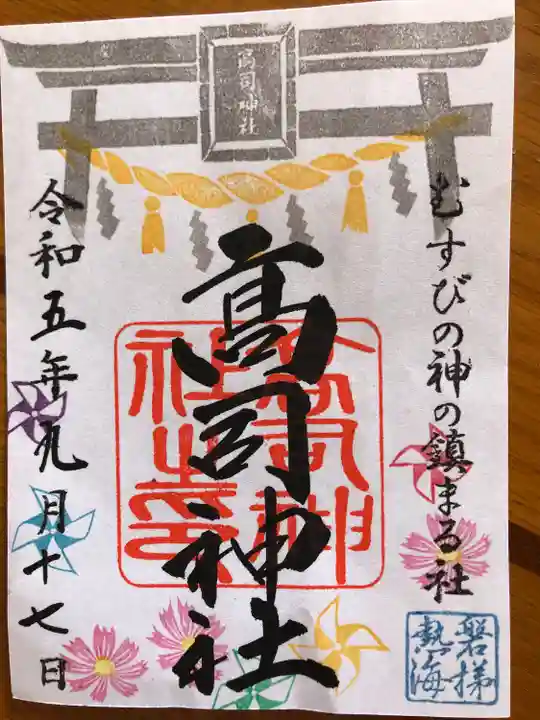 高司神社
むすびの神の鎮まる社
高司神社
高司神
社之印
令和五年九月十七日
磐梯
熱海